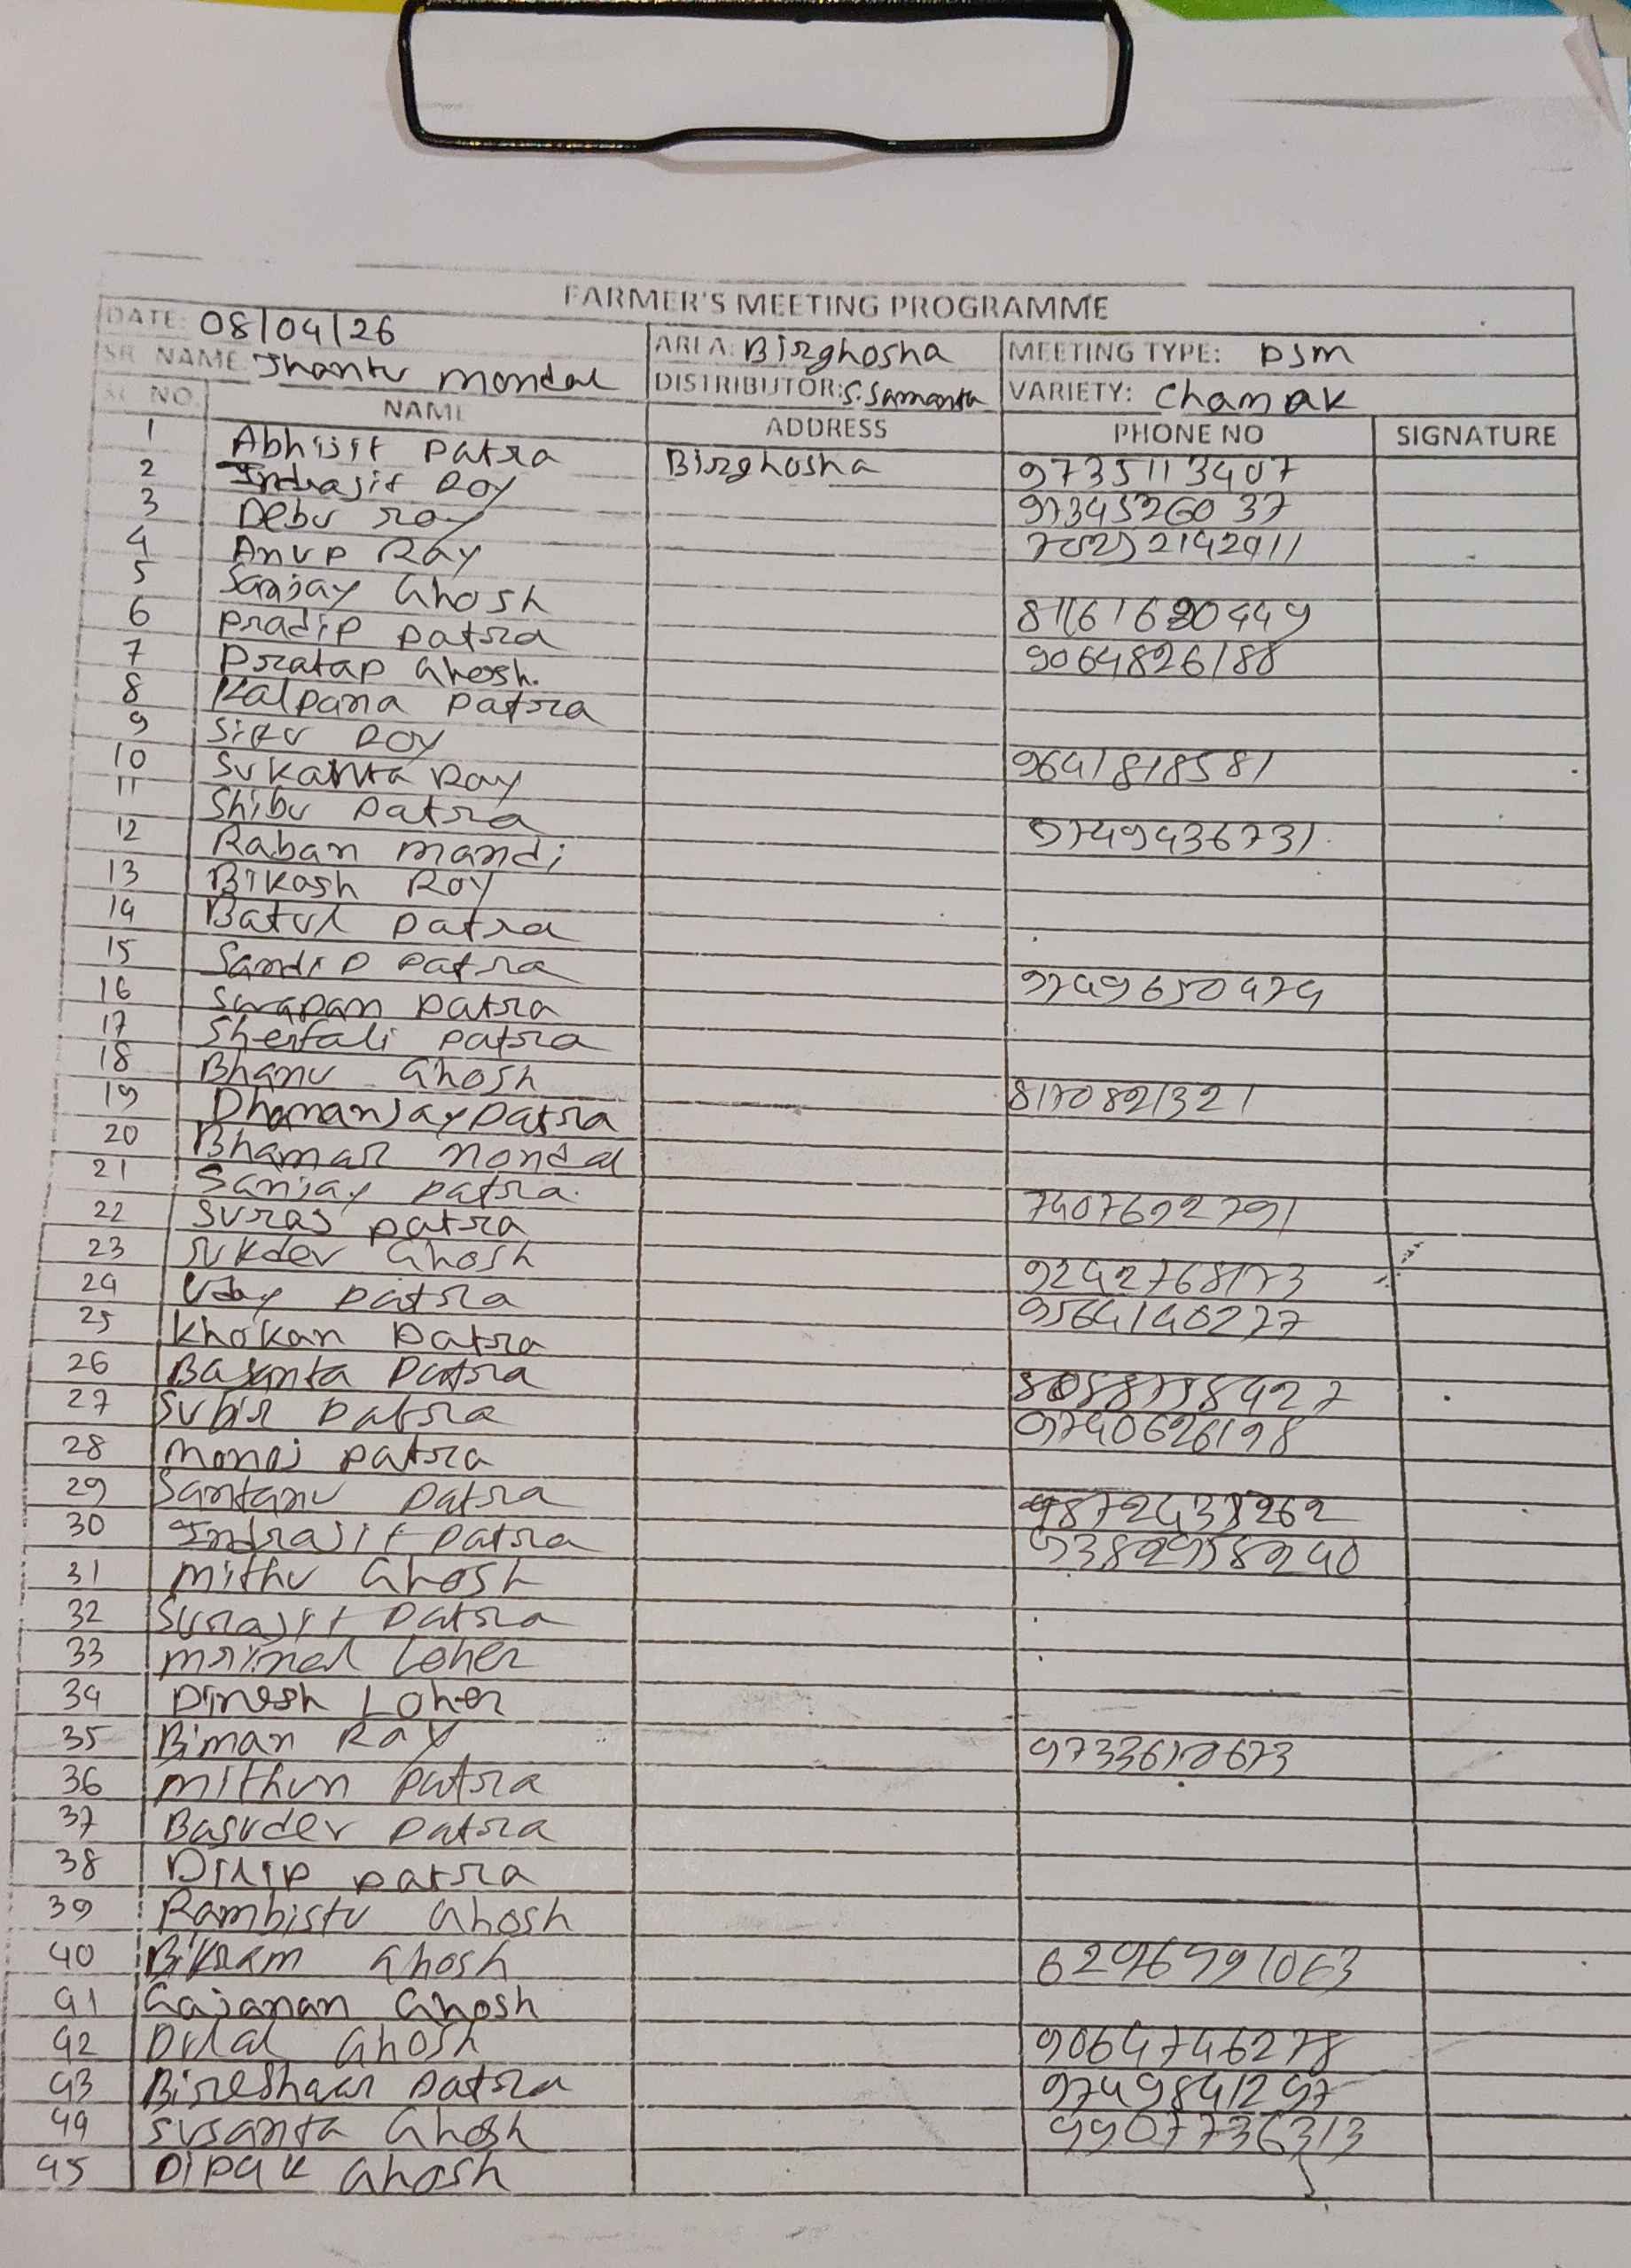 FARMER'S MEETING PROGRAMME
DATE: 08/04/26 AREA: Birghosha MEETING TYPE: PSM
SR. NAME: Jhantu mondal DISTRIBUTOR: S. Samanta VARIETY: Chamak
SL NO. NAME ADDRESS PHONE NO SIGNATURE
1 Abhijit patra Birghosha 9735113407
2 Indrajit Roy
3 Debu roy
4 Anup Ray
5 Sanjay Ghosh
6 Pradip patra 9064826188
7 Pratap Ghosh.
8 Kalpana patra
9 Roy 9641818581
10 Sukanta Ray
11 Shibu patra 9749436731
12 Raban mandi
13 Bikash Roy
14 Batul patra
15 Sandip patra 9749650474
16 Swapan patra
17 Shefali patra
18 Bhanu Ghosh
19 Dhananjay patra
20 Mondal
21 Sanjay patra 7407692791
22 Suraj patra
23 Sukdev Ghosh
24 Uday patra 9564140227
25 Khokan Patra
26 Basanta Patra
27 Subir patra 9740626198
28 Monoj patra
29 Santanu patra
30 Indrajit patra
31 Mithu Ghosh
32 Surajit Patra
33 Mrinal Loher
34 Dinesh Loher
35 Biman Ray
36 Mithun patra
37 Basudev patra
38 Dilip patra
39 Rambistu Ghosh
40 Bikram Ghosh
41 Gajanan Ghosh
42 Dulal Ghosh 9064746278
43 patra 9749841297
44 Susanta Ghosh
45 Dipak Ghosh